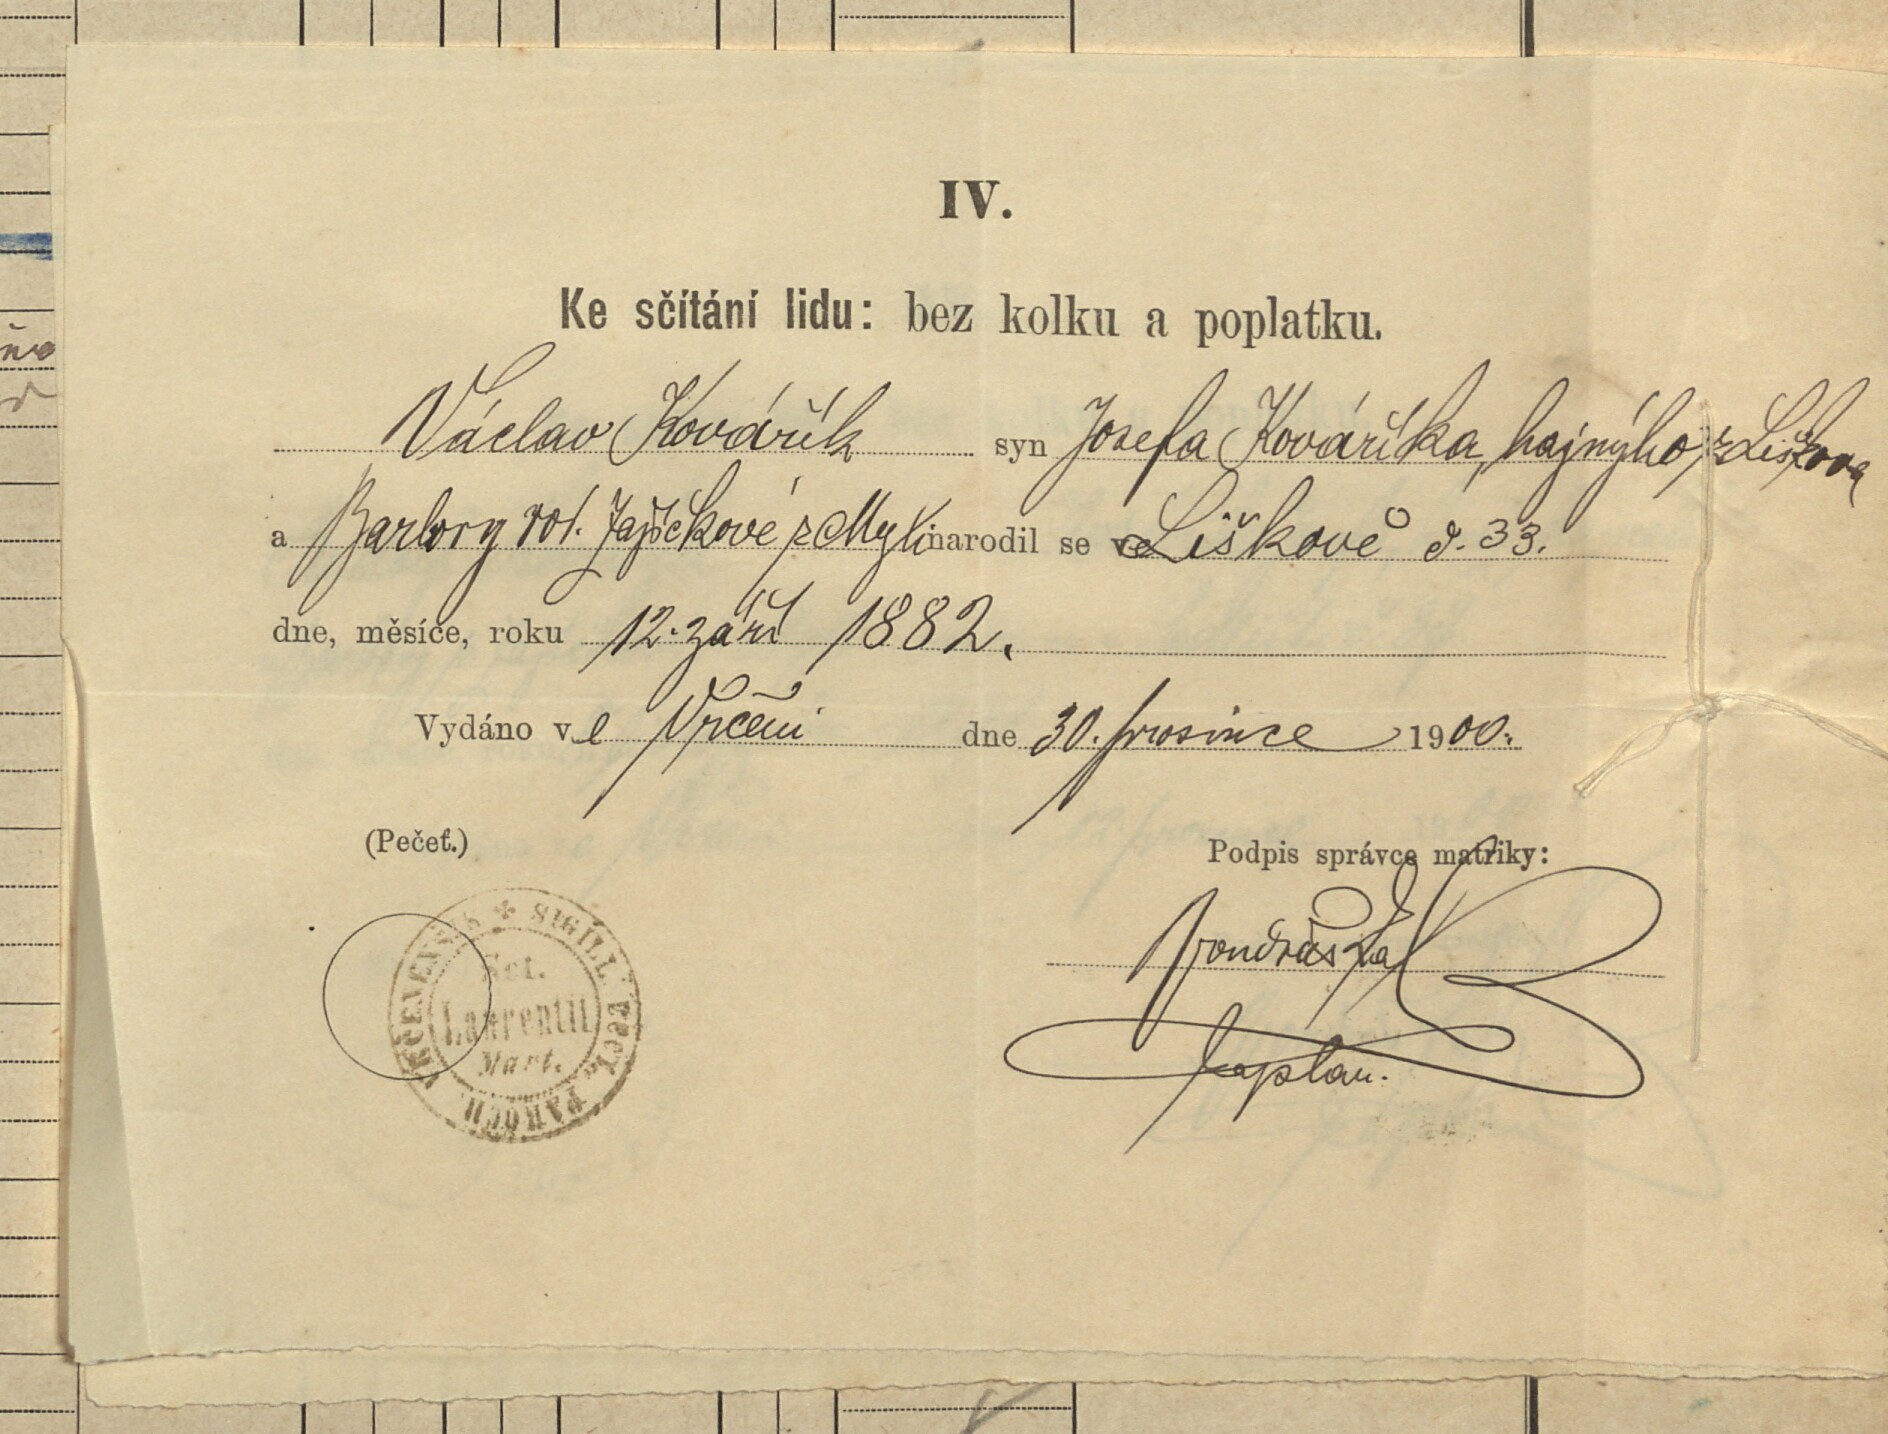 IV.
Ke sčítání lidu: bez kolku a poplatku.
Václav Kovářík syn Josefa Kováříka, hajného, z Liškova
a Barbory roz. Jajíčkové z Mylin narodil se ve Liškově č. 33.
dne, měsíce, roku 12. září 1882.
Vydáno ve Vrčeni dne 30. prosince 1900.
(Pečeť.)
Podpis správce matriky:
SIGILL. Eccl. PAROCH. VRČENENSIS
Sct.
Laurentii
Mart.
Vondráška
kaplan.